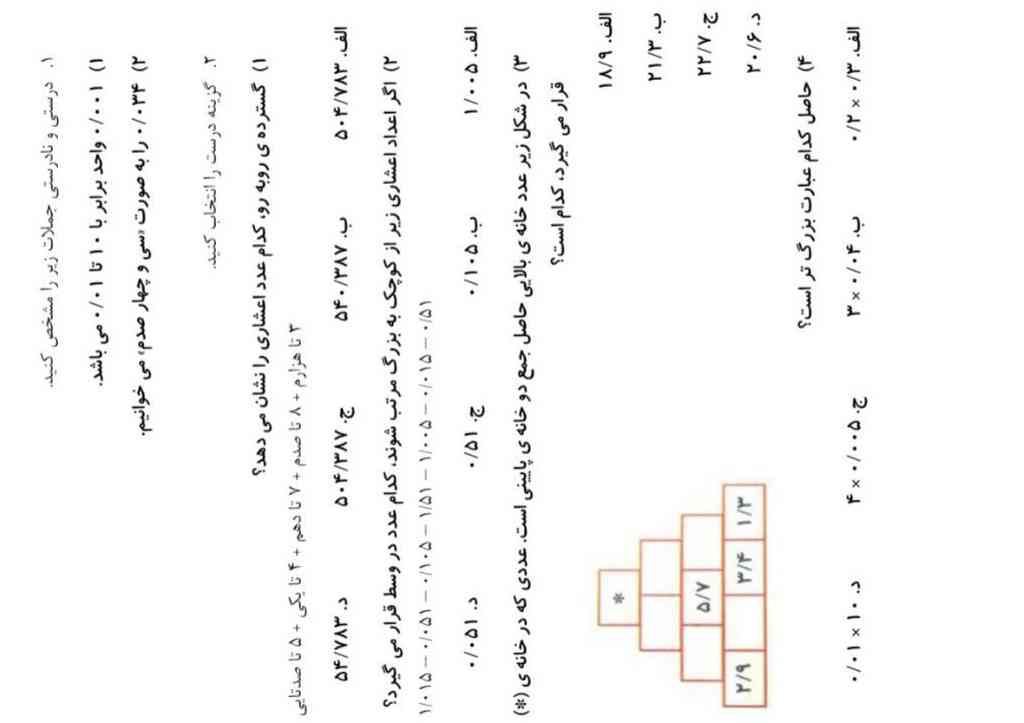 ۱. درستی و نادرستی جملات زیر را مشخص کنید.
۱) ۰/۰۰۱ واحد برابر با ۱۰ تا ۰/۰۱ می باشد.
۲) ۰/۰۳۴ را به صورت «سی و چهار صدم» می خوانیم.
۲. گزینه درست را انتخاب کنید.
۱) گسترده ی روبه رو، کدام عدد اعشاری را نشان می دهد؟
۳ تا هزارم + ۸ تا صدم + ۷ تا دهم + ۴ تا یکی + ۵ تا صدتایی
الف. ۵۰۴/۷۸۳ ب. ۵۴۰/۳۸۷ ج. ۵۰۴/۳۸۷ د. ۵۴/۷۸۳
۲) اگر اعداد اعشاری زیر از کوچک به بزرگ مرتب شوند، کدام عدد در وسط قرار می گیرد؟
۱/۰۱۵ – ۰/۰۵۱ – ۰/۱۰۵ – ۱/۵۱ – ۱/۰۰۵ – ۰/۰۱۵ – ۰/۵۱
الف. ۱/۰۰۵ ب. ۰/۱۰۵ ج. ۰/۵۱ د. ۰/۰۵۱
۳) در شکل زیر عدد خانه ی بالایی حاصل جمع دو خانه ی پایینی است. عددی که در خانه ی (*)
قرار می گیرد، کدام است؟
الف. ۱۸/۹
ب. ۲۱/۳
ج. ۲۲/۷
د. ۲۰/۶
*
۵/۷
۲/۹ ۳/۴ ۱/۳
۴) حاصل کدام عبارت بزرگ تر است؟
الف. ۰/۲ × ۰/۳ ب. ۳ × ۰/۰۴ ج. ۴ × ۰/۰۰۵ د. ۰/۰۱ × ۱۰